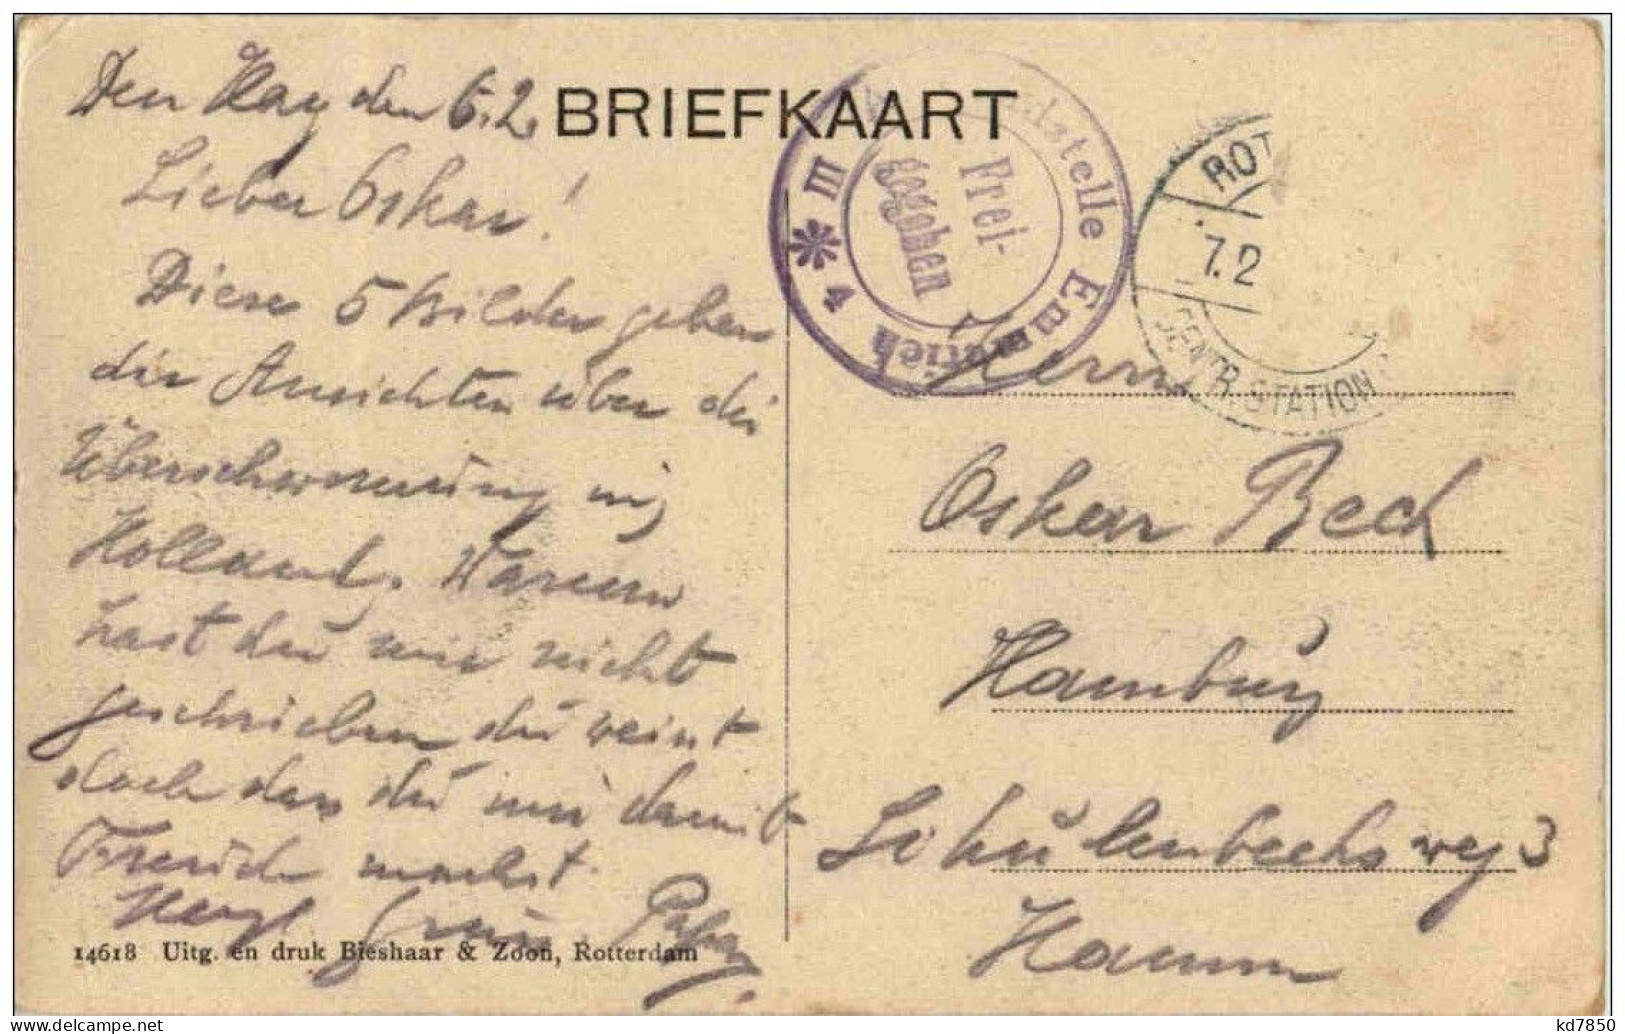 Den Haag den 6.2.
BRIEFKAART
Lieber Oskar!
Diese 5 Bilder geben
dir Ansichten über die
Überschwemmung in
Holland. Warum
hast du mir nicht
geschrieben du weist
doch das du mir damit
Freude machst.
Herzl. Gruss
14618 Uitg. en druk Bieshaar & Zoon, Rotterdam
stelle Emmerich
Frei-
gegeben
M
4
ROT
7.2
CENTR. STATION
Herrn
Oskar Beck
Hamburg
Schulenbecksweg 3
Hamm
kd7850